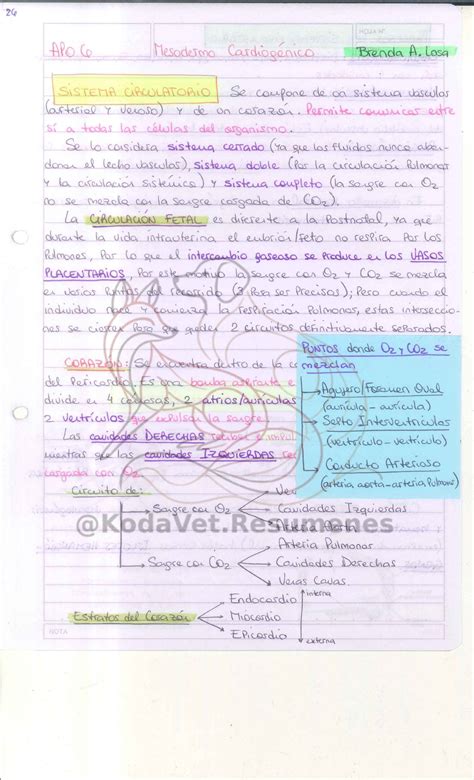 26
HOJA N°
APO 6 Mesodermo Cardiogénico Brenda A. Losa
SISTEMA CIRCULATORIO Se compone de un sistema vascular
(arterial y venoso) y de un corazón. Permite comunicar entre
sí a todas las células del organismo.
Se lo considera sistema cerrado (ya que los fluidos nunca aban-
donan el lecho vascular), sistema doble (Por la circulación Pulmonar
y la circulación sistémica) y sistema completo (la sangre con O2
no se mezcla con la sangre cargada de CO2).
La CIRCULACIÓN FETAL es diferente a la Postnatal, ya que
durante la vida intrauterina el embrión/feto no respira Por los
Pulmones, Por lo que el intercambio gaseoso se produce en los VASOS
PLACENTARIOS, Por este motivo la sangre con O2 y CO2 se mezcla
en varios Puntos del recorrido (3 Para ser Precisos); Pero cuando el
individuo nace y comienza la respiración Pulmonar, estas interseccio-
nes se cierran Para que queden 2 circuitos definitivamente separados.
PUNTOS donde O2 y CO2 se
mezclan
Agujero/Foramen Oval
(aurícula - aurícula)
Septo Interventricular
(ventrículo - ventrículo)
Conducto Arterioso
(arteria aorta - arteria Pulmonar)
CORAZÓN: Se encuentra dentro de la
del Pericardio. Es una bomba aspirante
divide en 4 2 atrios/aurículas
2 ventrículos que expulsan la sangre.
Las cavidades DERECHAS reciben
mientras que las cavidades IZQUIERDAS
cargada con O2.
Circuito de:
Sangre con O2
Cavidades Izquierdas
@KodaVet.Resumenes
Arteria Pulmonar
Sangre con CO2 Cavidades Derechas
Venas Cavas
Estratos del Corazón
Endocardio interna
Miocardio
Epicardio externa
NOTA